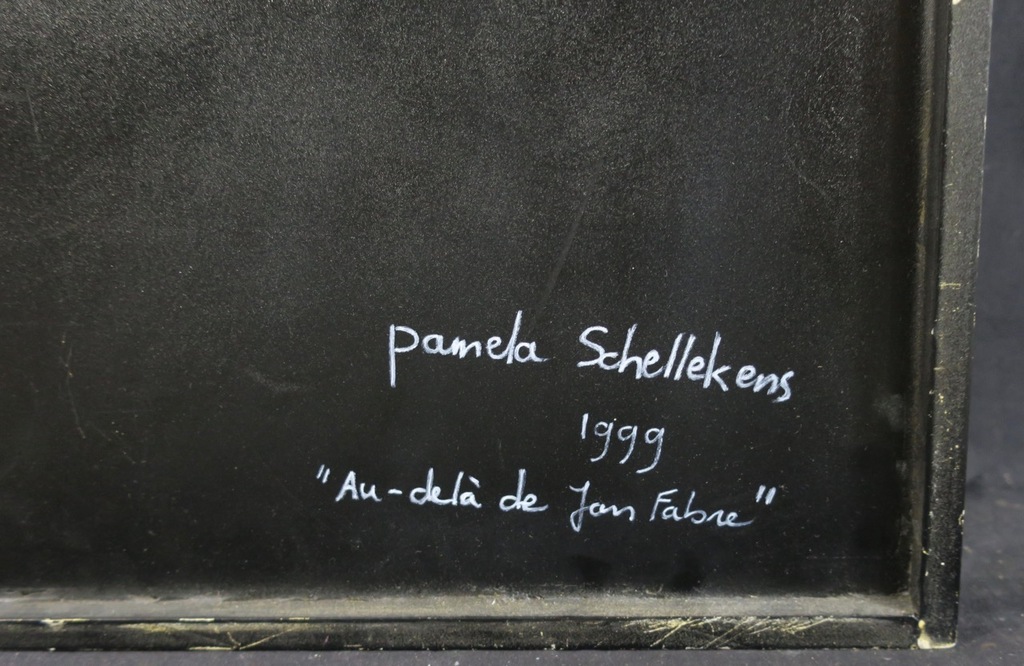 pamela Schellekens
1999
"Au-delà de Jan Fabre"